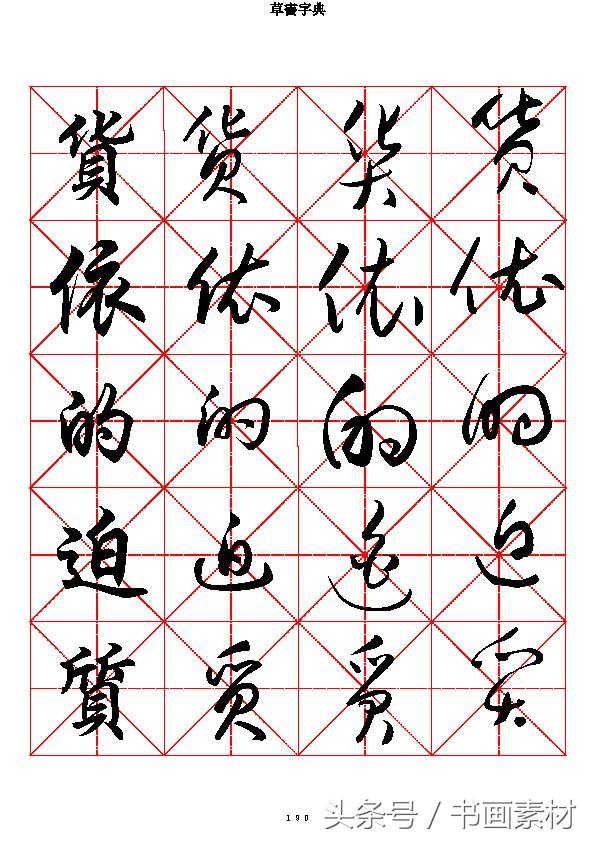 草書字典
貨 貨 貨 貨
依 依 依 依
的 的 的 的
迫 迫 迫 迫
質 質 質 質
190
头条号 / 书画素材